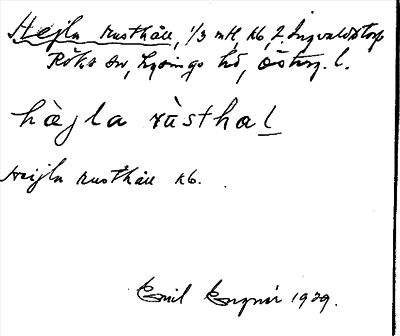 Hejla rusthåll, 1/3 mtl, kb, 2. Ingvaldstorp
Röks sn, Lysings hd, Östergl. l.
hàjla rùsthal
Heijla rusthåll kb.
Emil 1929.